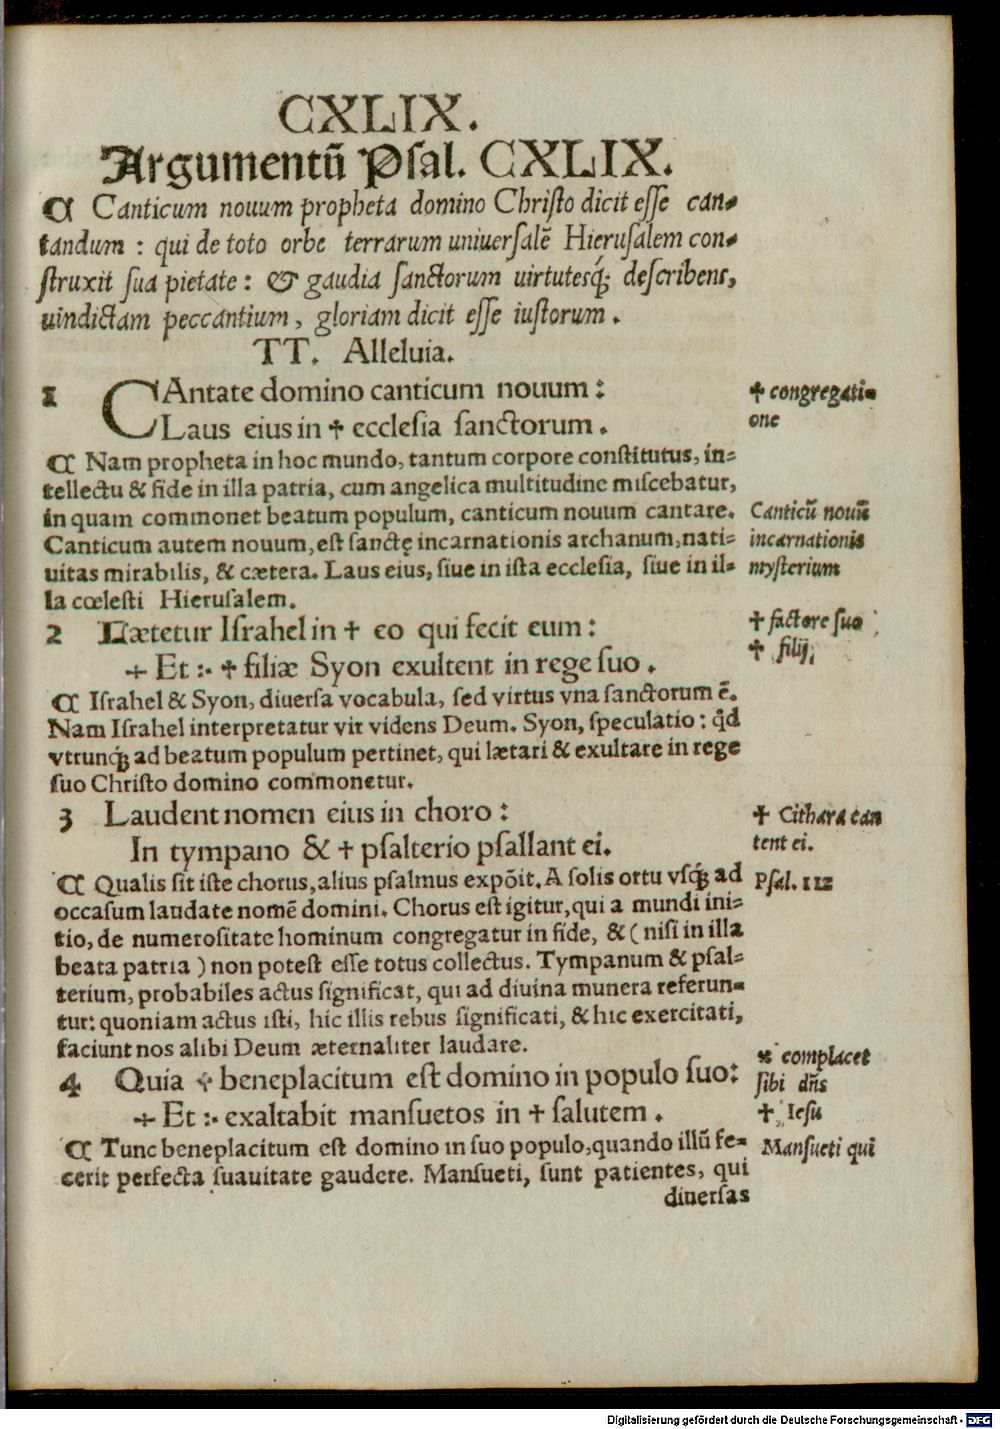 CXLIX.
Argumentū Psal. CXLIX.
¶ Canticum nouum propheta domino Christo dicit esse can-
tandum : qui de toto orbe terrarum uniuersalē Hierusalem con-
struxit sua pietate : & gaudia sanctorum uirtutesq́; describens,
uindictam peccantium, gloriam dicit esse iustorum.
TT. Alleluia.
1 CAntate domino canticum nouum :
Laus eius in ✝ ecclesia sanctorum.
✝ congregati-
one
¶ Nam propheta in hoc mundo, tantum corpore constitutus, in-
tellectu & fide in illa patria, cum angelica multitudine miscebatur,
in quam commonet beatum populum, canticum nouum cantare.
Canticum autem nouum, est sanctę incarnationis archanum, nati-
uitas mirabilis, & cætera. Laus eius, siue in ista ecclesia, siue in il-
la cœlesti Hierusalem.
Canticū nouū
incarnationis
mysterium
2 Lætetur Israhel in ✝ eo qui fecit eum :
÷ Et :· ✝ filiæ Syon exultent in rege suo.
✝ factore suo
✝ filij
¶ Israhel & Syon, diuersa vocabula, sed virtus vna sanctorum ē.
Nam Israhel interpretatur vir videns Deum. Syon, speculatio : qd̄
vtrunq́; ad beatum populum pertinet, qui lætari & exultare in rege
suo Christo domino commonetur.
3 Laudent nomen eius in choro :
In tympano & ✝ psalterio psallant ei.
✝ Cithara can
tent ei.
¶ Qualis sit iste chorus, alius psalmus expōit. A solis ortu vsq́; ad
occasum laudate nomē domini. Chorus est igitur, qui a mundi ini-
tio, de numerositate hominum congregatur in fide, & ( nisi in illa
beata patria ) non potest esse totus collectus. Tympanum & psal-
terium, probabiles actus significat, qui ad diuina munera referun-
tur: quoniam actus isti, hic illis rebus significati, & hic exercitati,
faciunt nos alibi Deum æternaliter laudare.
Psal. 112
4 Quia ✝ beneplacitum est domino in populo suo:
÷ Et :· exaltabit mansuetos in ✝ salutem.
✝ complacet
sibi dn̄s
✝ Iesu
¶ Tunc beneplacitum est domino in suo populo, quando illū fe-
cerit perfecta suauitate gaudere. Mansueti, sunt patientes, qui
Mansueti qui
diuersas
Digitalisierung gefördert durch die Deutsche Forschungsgemeinschaft - DFG